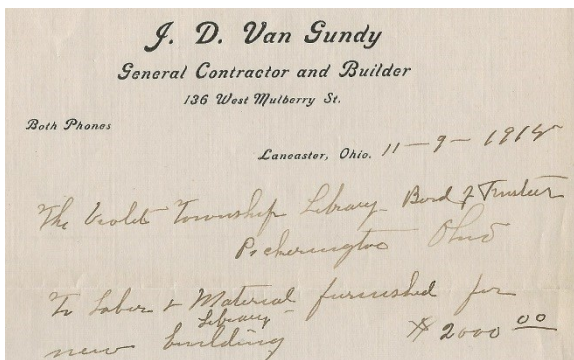 J. D. Van Gundy
General Contractor and Builder
136 West Mulberry St.
Both Phones
Lancaster, Ohio. 11-9-1915
The Violet Township Library Bord of Trustees
Pickerington Ohio
To Labor & Material furnished for
new Library building $2000 00